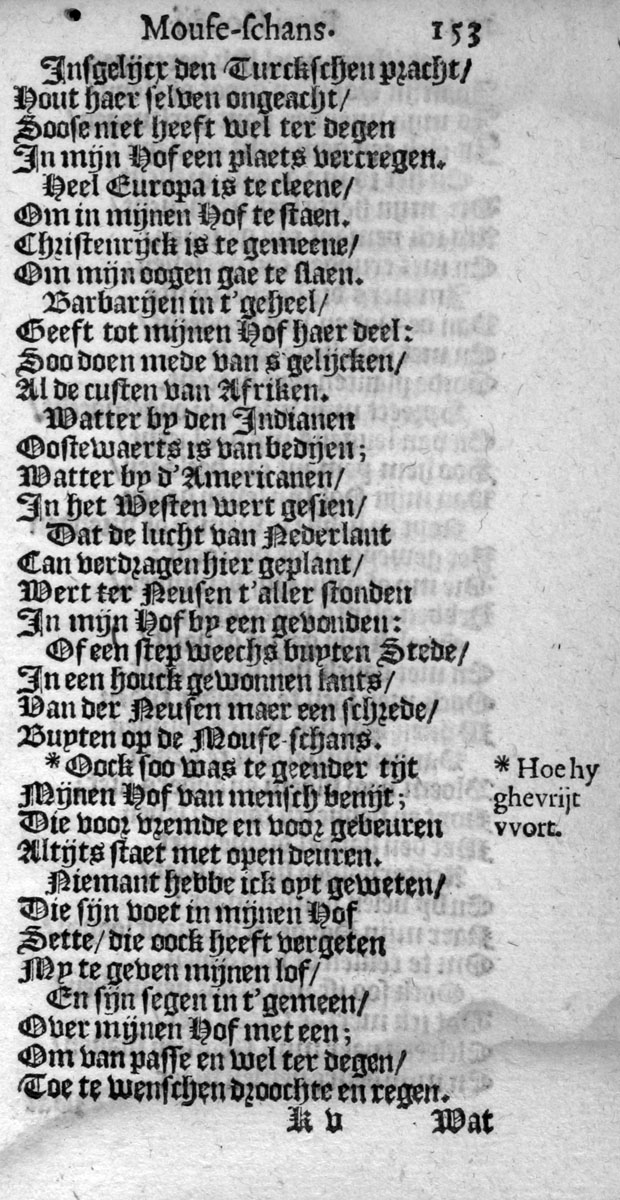 Moufe-schans. 153
Insgelijcx den Turckschen pracht/
Hout haer selven ongeacht/
Soose niet heeft wel ter degen
In mijn Hof een plaets vercregen.
Heel Europa is te cleene/
Om in mijnen Hof te staen.
Christenrijck is te gemeene/
Om mijn oogen gae te slaen.
Barbarijen in t'geheel/
Geeft tot mijnen Hof haer deel:
Soo doen mede van s'gelijcken/
Al de custen van Afriken.
Watter by den Indianen
Oostewaerts is van bedijen;
Watter by d'Americanen/
In het Westen wert gesien/
Dat de lucht van Nederlant
Can verdragen hier geplant/
Wert ter Neusen t'aller stonden
In mijn Hof by een gevonden:
Of een step weechs buyten Stede/
In een houck gewonnen lants/
Van der Neusen maer een schrede/
Buyten op de Moufe-schans.
*Oock soo was te geender tijt
Mijnen Hof van mensch benijt;
Die voor vremde en voor gebeuren
Altijts staet met open deuren.
Niemant hebbe ick oyt geweten/
Die sijn voet in mijnen Hof
Sette/die oock heeft vergeten
My te geven mijnen lof/
En sijn segen in t'gemeen/
Over mijnen Hof met een;
Om van passe en wel ter degen/
Toe te wenschen droochte en regen.
* Hoe hy
ghevrijt
vvort.
K v Wat